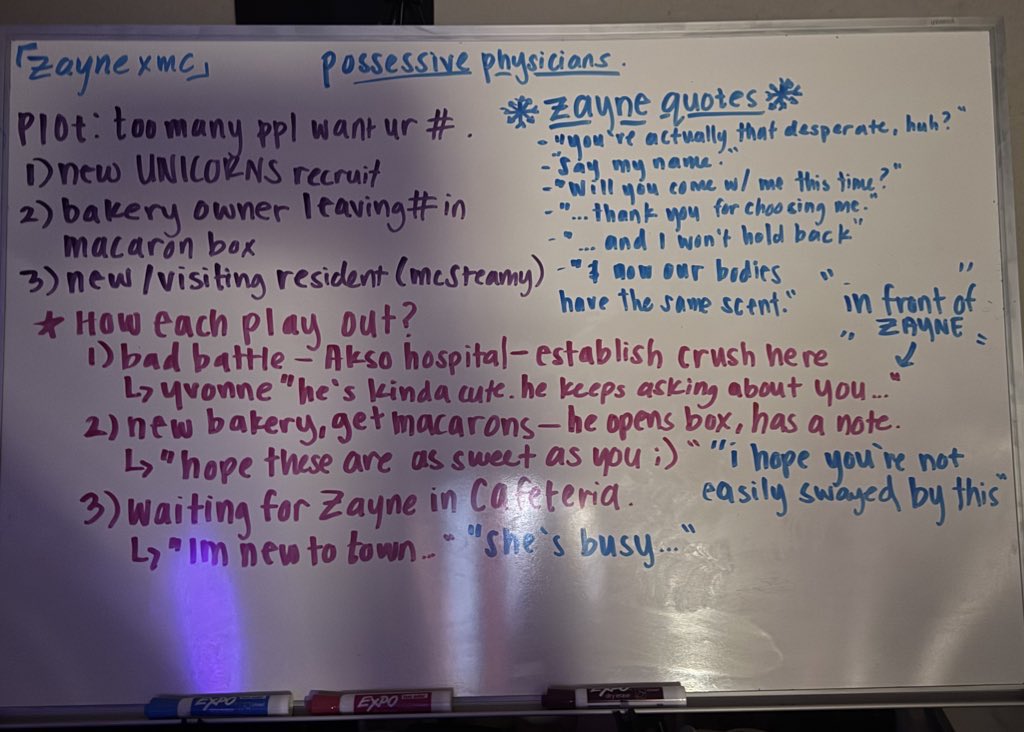 「zayne x mc」
possessive physicians.
Plot: too many ppl want ur #.
1) new UNICORNS recruit
2) bakery owner leaving # in
macaron box
3) new/visiting resident (mcsteamy)
* zayne quotes *
- "you're actually that desperate, huh?"
- "say my name."
- "Will you come w/ me this time?"
- "...thank you for choosing me."
- "... and I won't hold back"
- "& now our bodies
have the same scent."
" "
in front of
" ZAYNE "
↙
* How each play out?
1) bad battle - Akso hospital - establish crush here
↳ yvonne "he's kinda cute. he keeps asking about you..."
2) new bakery, get macarons - he opens box, has a note.
↳ "hope these are as sweet as you ;)" "i hope you're not
easily swayed by this"
3) waiting for Zayne in Cafeteria.
↳ "Im new to town..." "She's busy..."
EXPO
EXPO
EXPO